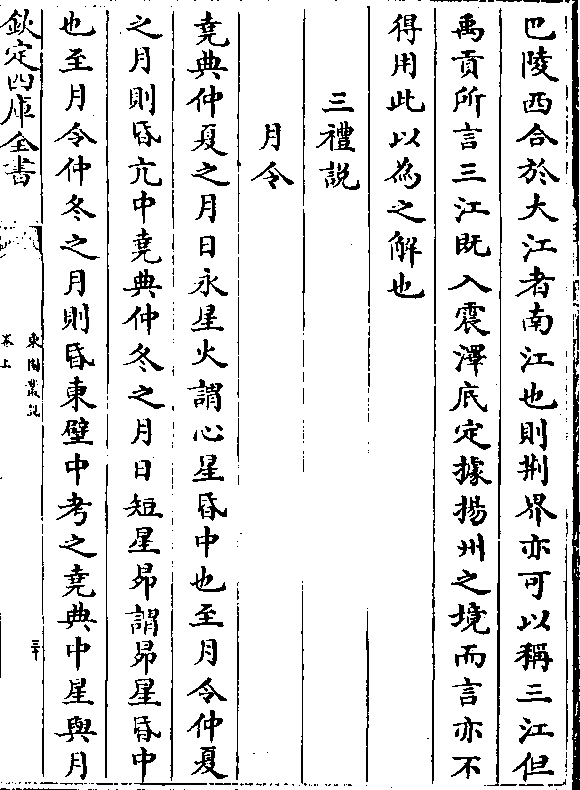 巴陵西合於大江者南江也則荆界亦可以稱三江但
禹貢所言三江既入震澤底定據揚州之境而言亦不
得用此以為之解也
三禮説
月令
堯典仲夏之月日永星火謂心星昏中也至月令仲夏
之月則昏亢中堯典仲冬之月日短星昴謂昴星昏中
也至月令仲冬之月則昏東壁中考之堯典中星與月
欽定四庫全書
卷上